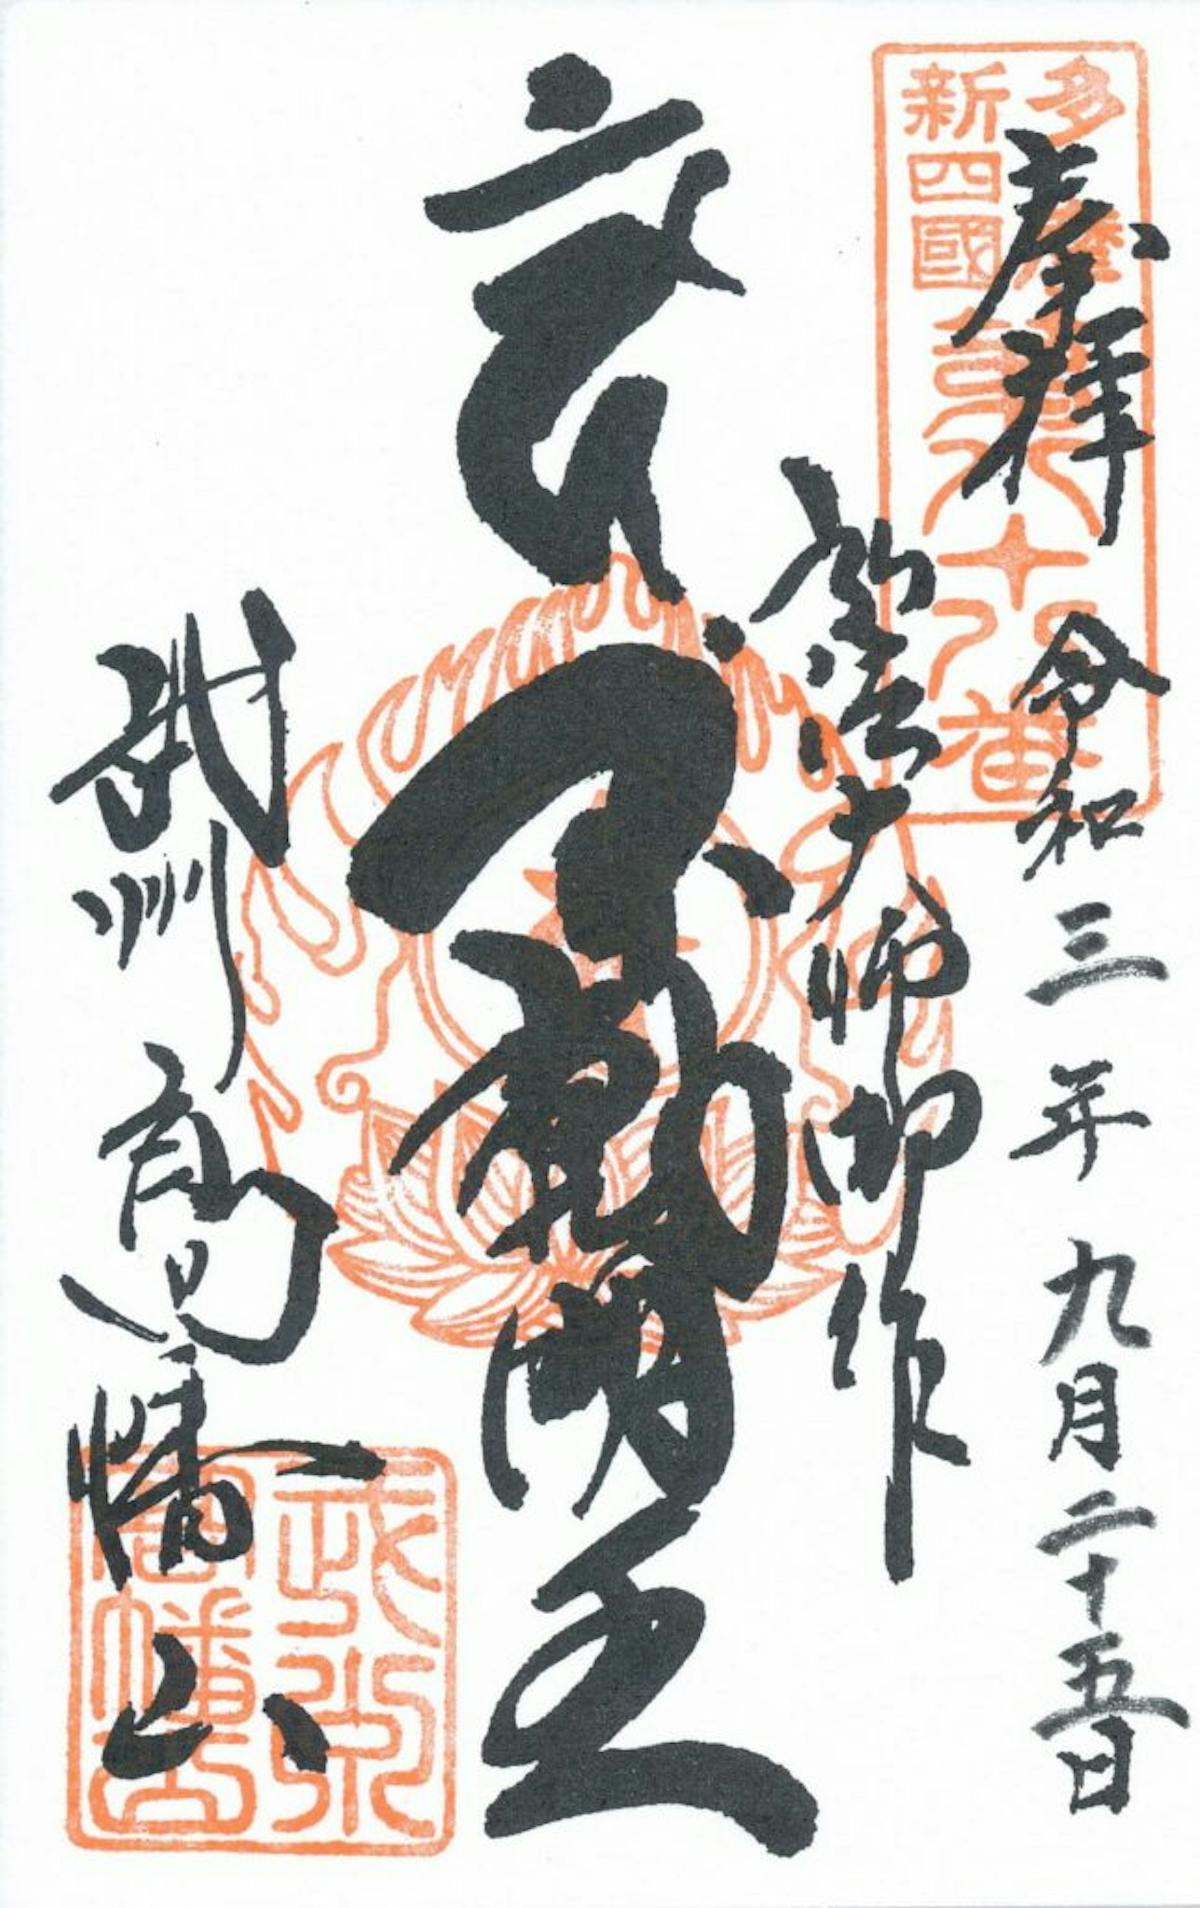 多摩
新四國
第八十八番
奉拝
令和三年九月二十五日
弘法大師御作
不動明王
武州高幡山
武州
高幡山